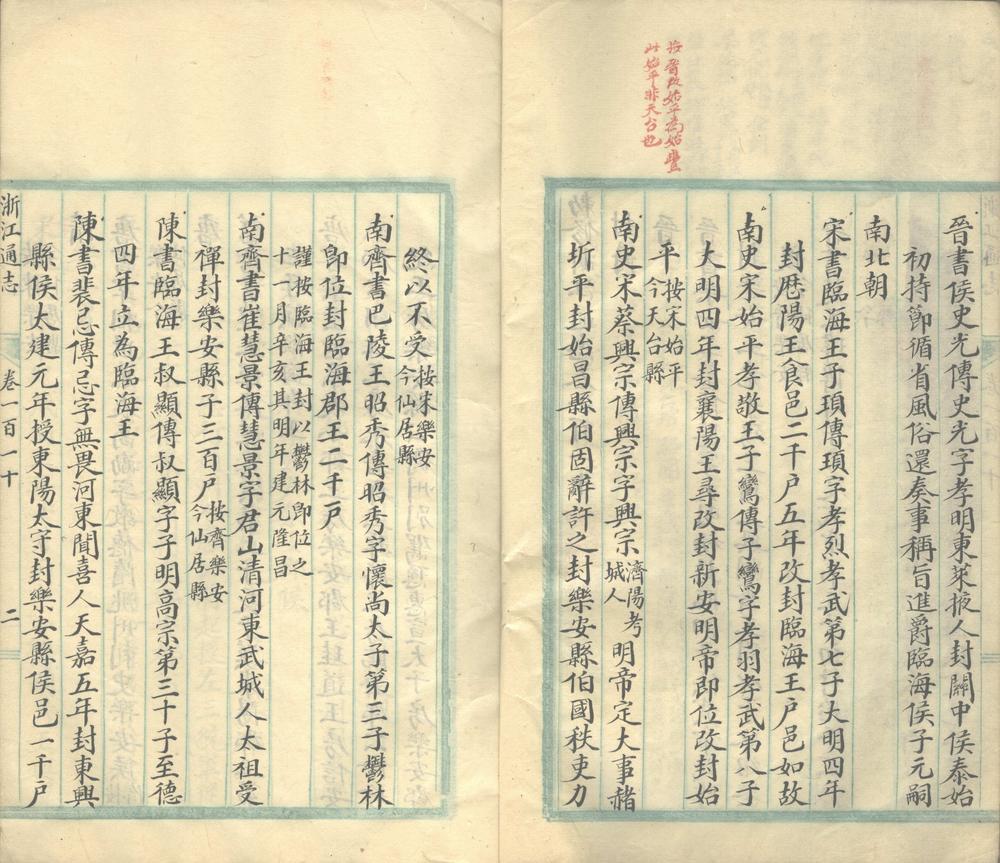 按晉改始平為始豐
此始平非天台也
晉書侯史光傳史光字孝明東萊掖人封關中侯泰始
初持節循省風俗還奏事稱旨進爵臨海侯子元嗣
南北朝
宋書臨海王子頊傳頊字孝烈孝武第七子大明四年
封歷陽王食邑二千户五年改封臨海王户邑如故
南史宋始平孝敬王子鸞傳子鸞字孝羽孝武第八子
大明四年封襄陽王尋改封新安明帝即位改封始
平按宋始平今天台縣
南史宋蔡興宗傳興宗字興宗濟陽考城人明帝定大事赭
圻平封始昌縣伯固辭許之封樂安縣伯國秩吏力
終以不受按宋樂安今仙居縣
南齊書巴陵王昭秀傳昭秀字懷尚太子第三子鬱林
即位封臨海郡王二千户
謹按臨海王封以鬱林即位之
十一月辛亥其明年建元隆昌
南齊書崔慧景傳慧景字君山清河東武城人太祖受
禪封樂安縣子三百户按齊樂安今仙居縣
陳書臨海王叔顯傳叔顯字子明高宗第三十子至德
四年立為臨海王
陳書裴忌傳忌字無畏河東聞喜人天嘉五年封東興
縣侯太建元年授東陽太守封樂安縣侯邑一千户
浙江通志 卷一百一十 二